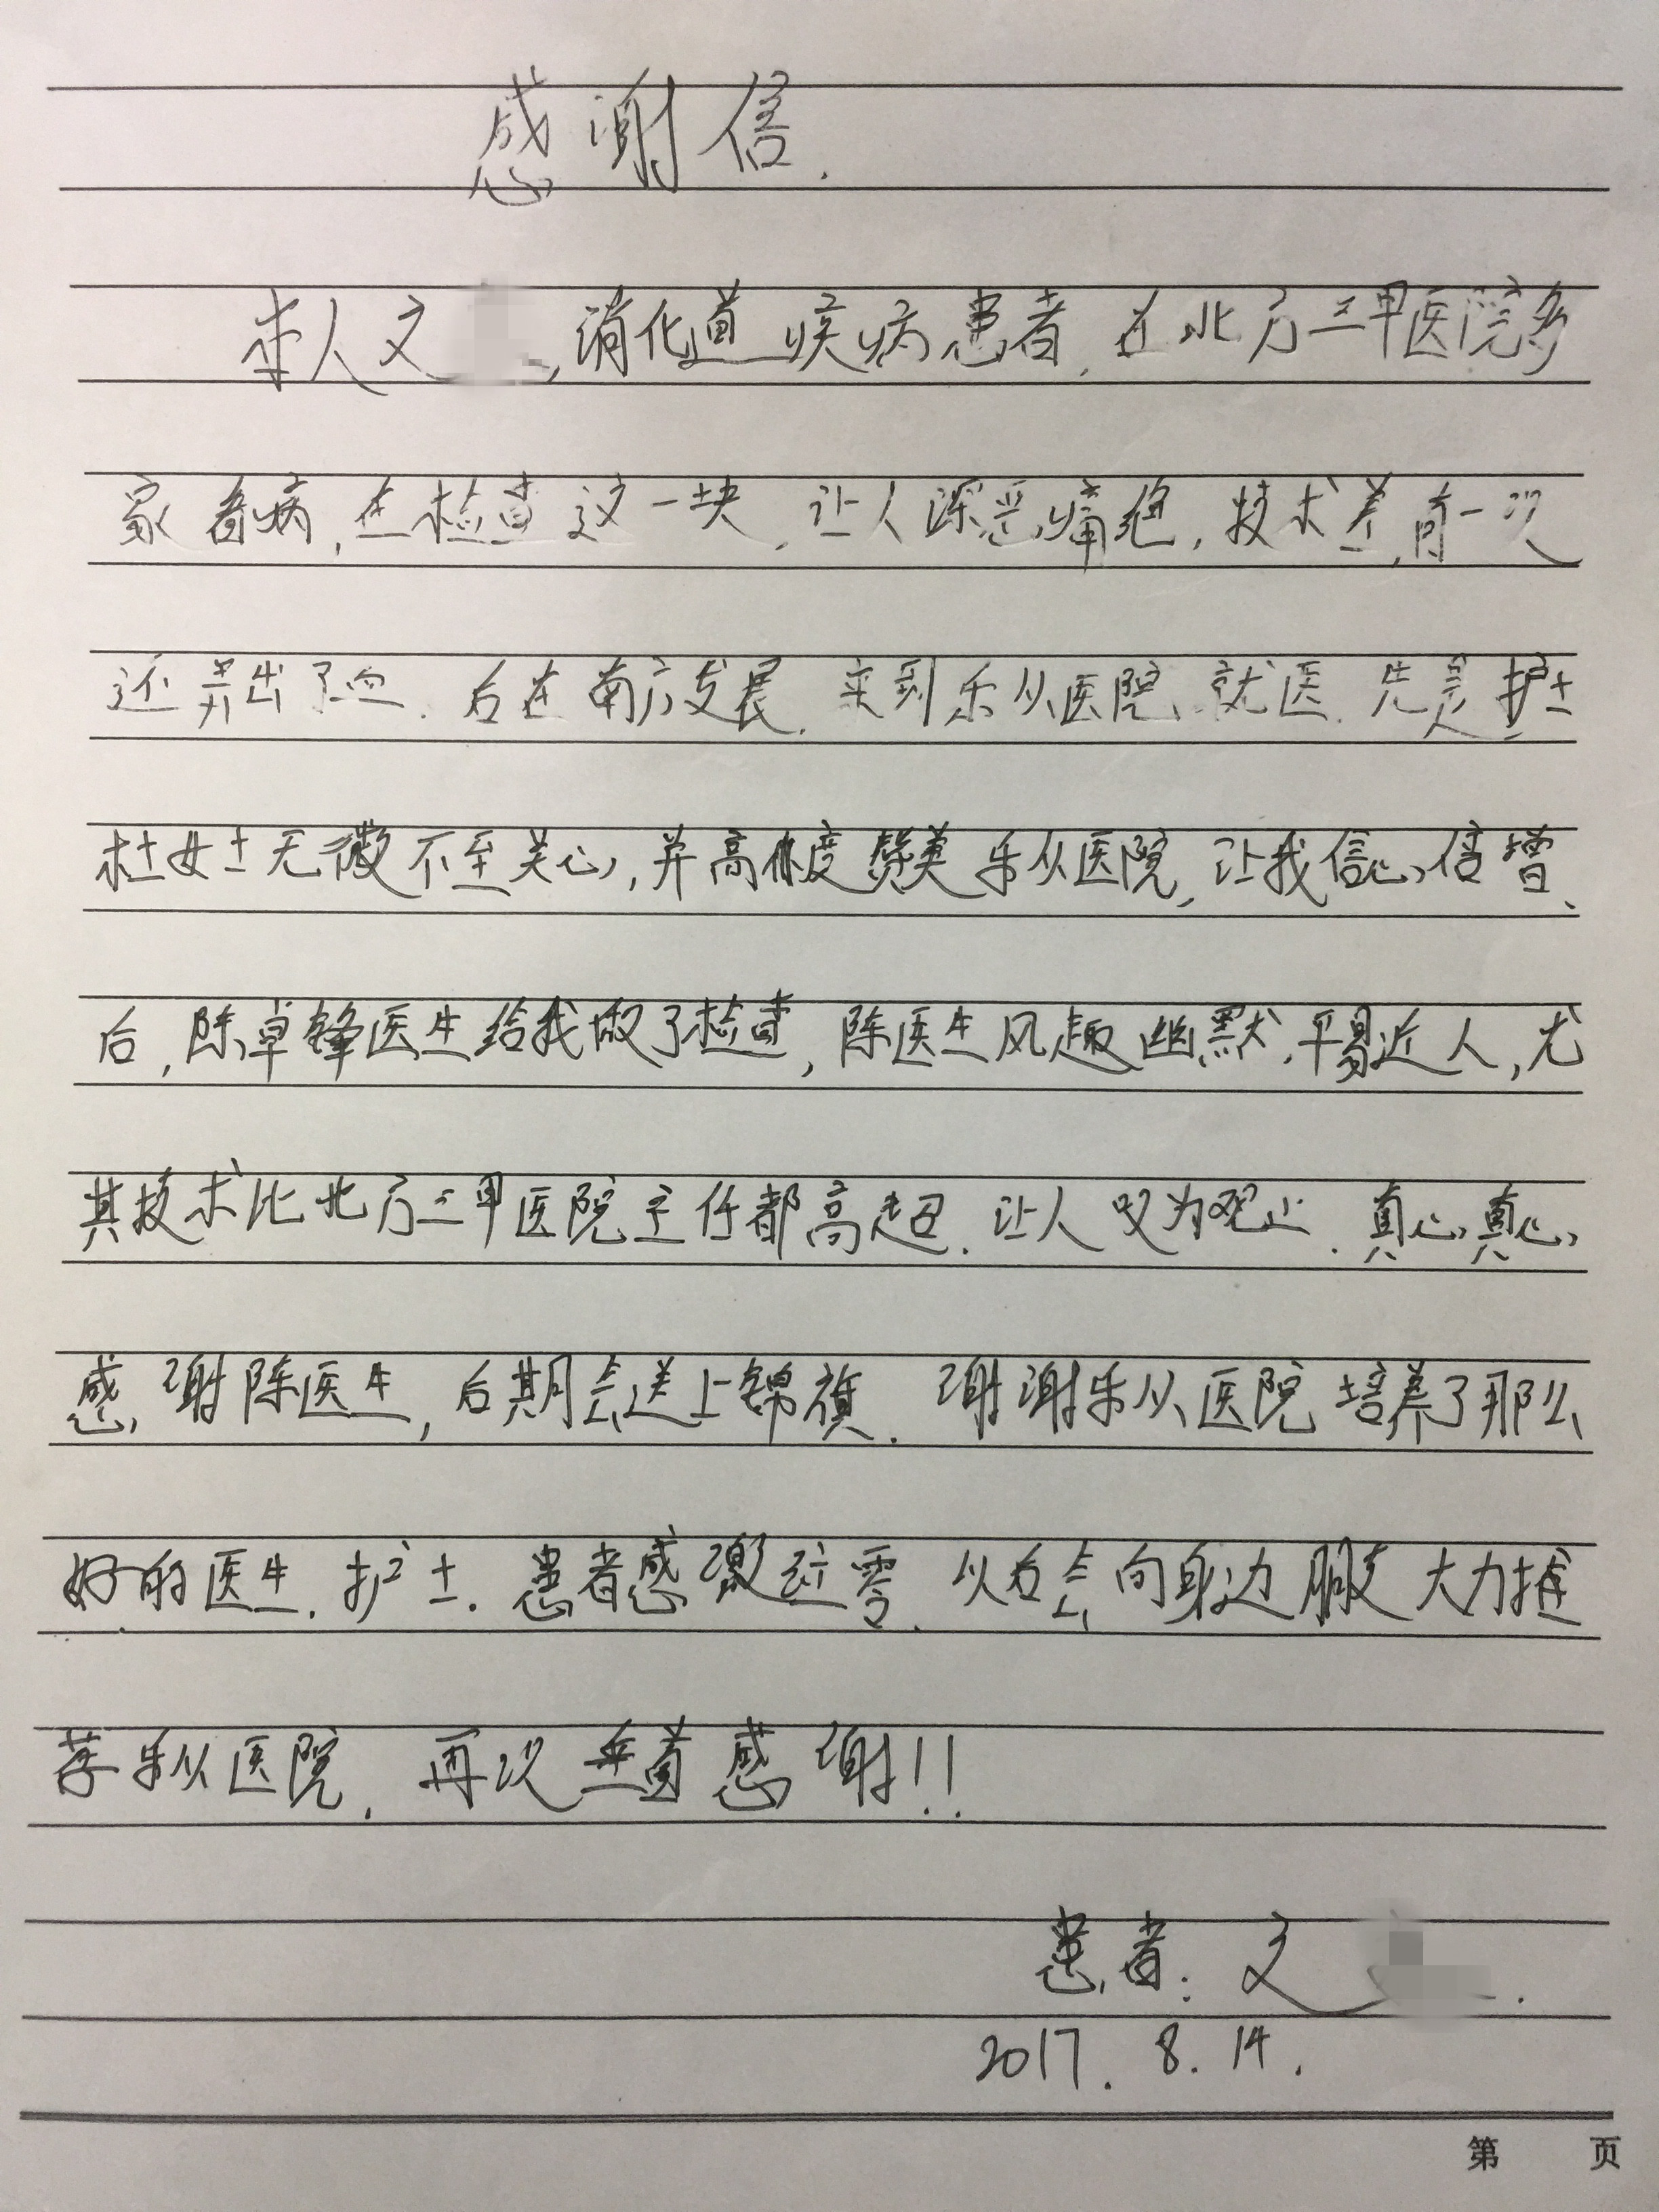 感谢信.
本人文 ,消化道疾病患者,在北方三甲医院多
家看病,在检查这一块,让人深恶痛绝,技术差,有一次
还弄出了血.后在南方发展.来到乐从医院就医.先是护士
杜女士无微不至关心,并高度赞美乐从医院,让我信心倍增、
后,陈卓锋医生给我做了检查,陈医生风趣幽默,平易近人,尤
其技术比北方三甲医院主任都高超.让人叹为观止.真心真心
感谢陈医生,后期会送上锦旗.谢谢乐从医院培养了那么
好的医生.护士.患者感激涕零.以后会向身边朋友大力推
荐乐从医院.再次垂首感谢!!
患者:文 .
2017.8.14.
第 页